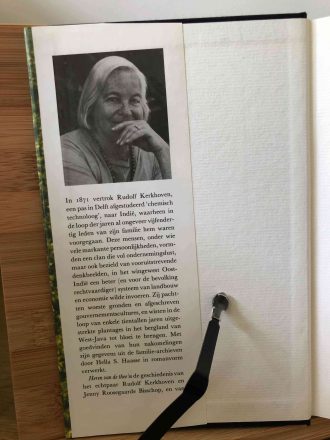 In 1871 vertrok Rudolf Kerkhoven,
een pas in Delft afgestudeerd 'chemisch
technoloog', naar Indië, waarheen in
de loop der jaren al ongeveer vijfender-
tig leden van zijn familie hem waren
voorgegaan. Deze mensen, onder wie
vele markante persoonlijkheden, vorm-
den een clan die vol ondernemingslust,
maar ook bezield van vooruitstrevende
denkbeelden, in het wingewest Oost-
Indië een beter (en voor de bevolking
rechtvaardiger) systeem van landbouw
en economie wilde invoeren. Zij pacht-
ten woeste gronden en afgeschreven
gouvernementscultures, en wisten in de
loop van enkele tientallen jaren uitge-
strekte plantages in het bergland van
West-Java tot bloei te brengen. Met
goedvinden van hun nakomelingen
zijn gegevens uit de familie-archieven
door Hella S. Haasse in romanvorm
verwerkt.
Heren van de thee is de geschiedenis van
het echtpaar Rudolf Kerkhoven en
Jenny Roosegaarde Bisschop, en van